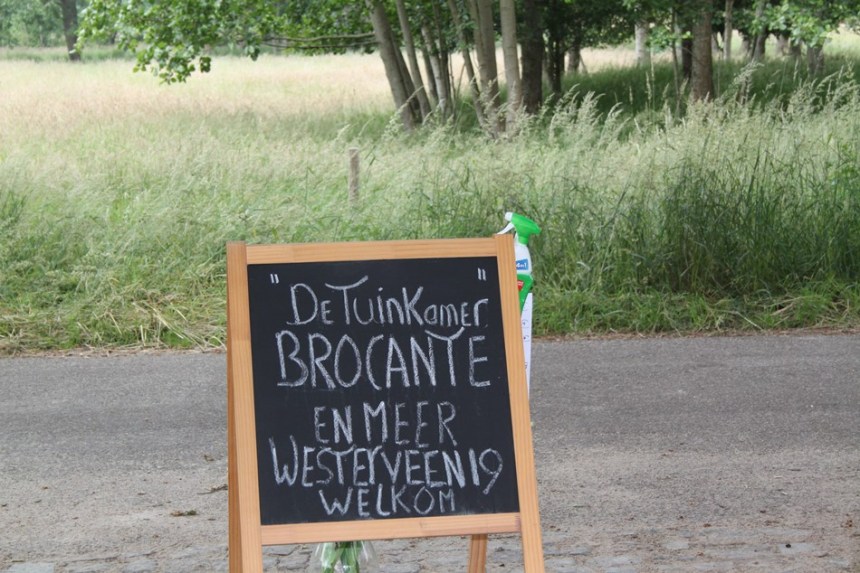 "DeTuinKamer"
BROCANTE
EN MEER
WESTERVEEN 19
WELKOM